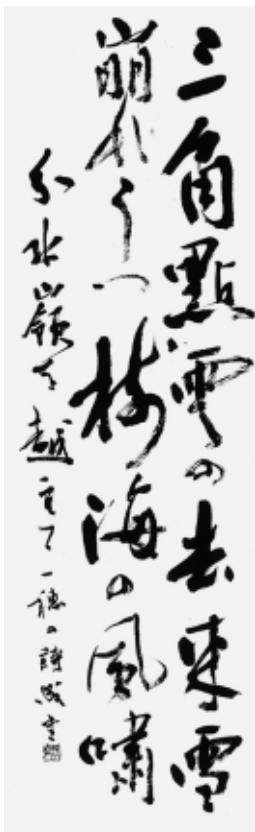 三角點雲の去来雪
崩れうつ樹海の風嘯
分水嶺を越えて 一穂の詩